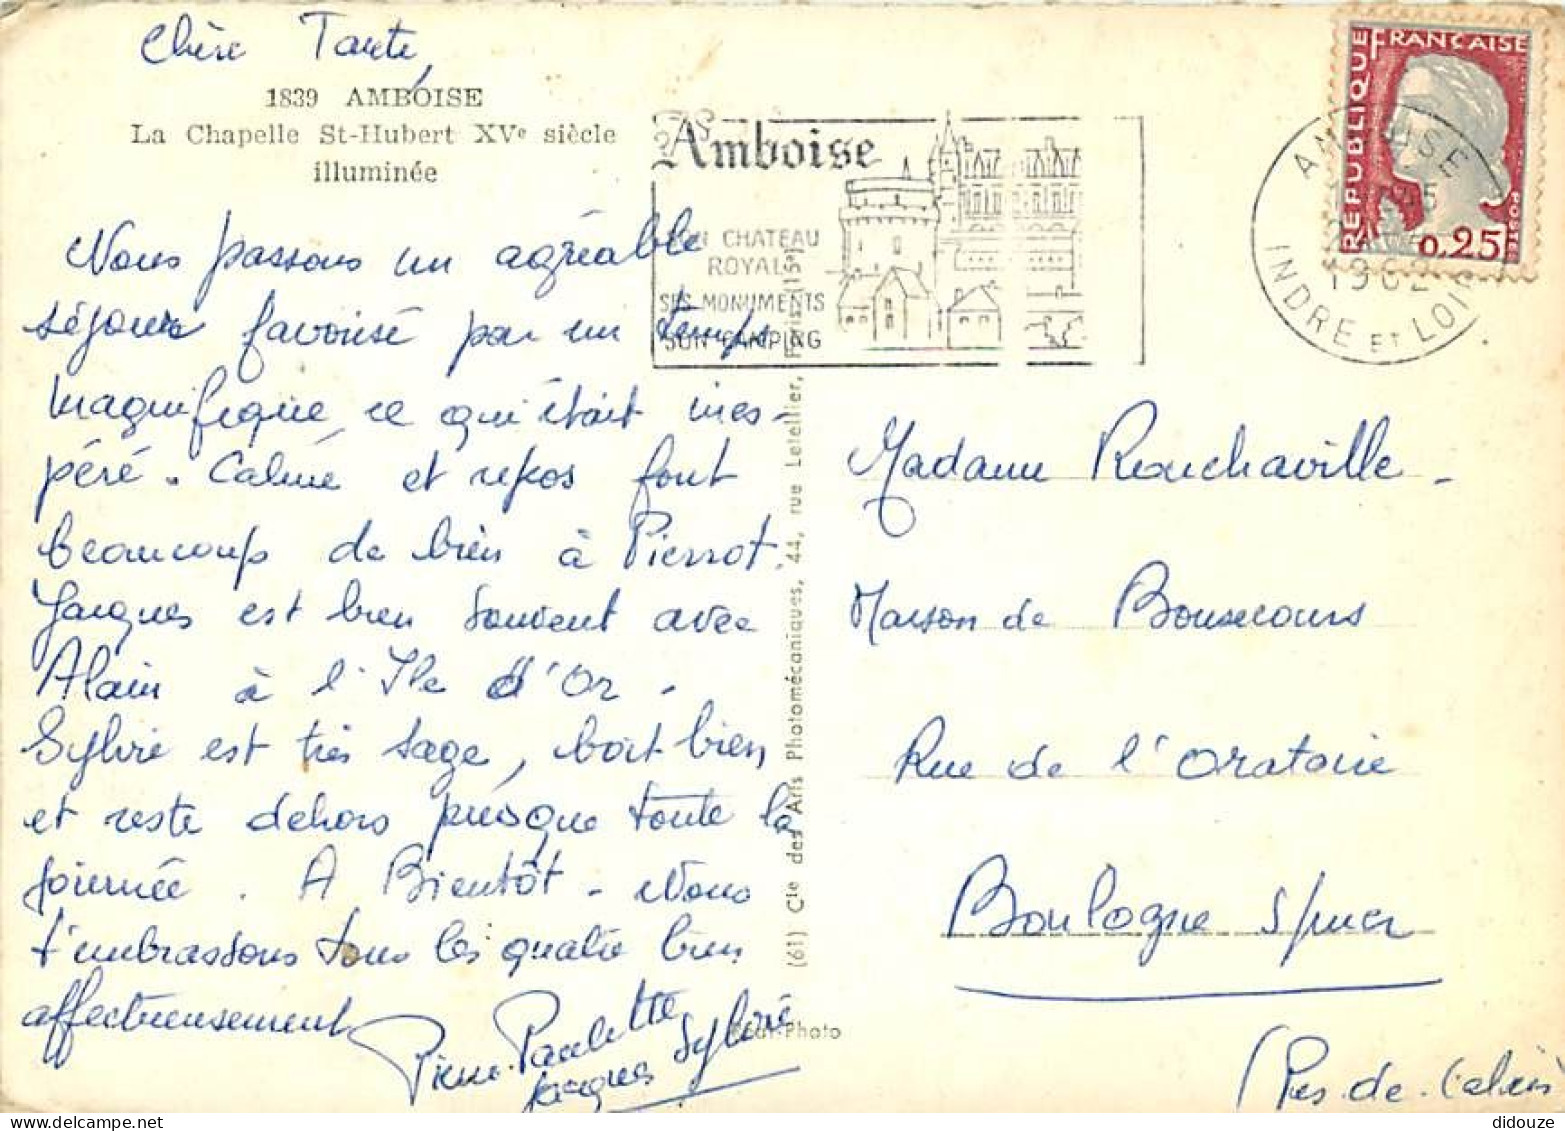 Chère Tante,
1839 AMBOISE
La Chapelle St-Hubert XVe siècle
illuminée
Nous passons un agréable
séjour favorisé par un temps
magnifique, ce qui était ines-
péré. Calme et repos font
beaucoup de bien à Pierrot.
Jacques est bien souvent avec
Alain à l'Ile d'Or.
Sylvie est très sage, boit bien
et reste dehors presque toute la
journée. A Bientôt - Nous
t'embrassons tous les quatre bien
affectueusement
Pierre Paulette
Jacques Sylvie
Amboise
SON CHATEAU
ROYAL
SES MONUMENTS
SON CAMPING
AMBOISE
1962
INDRE ET LOIRE
REPUBLIQUE FRANÇAISE
0,25
POSTES
(61) Cie des Arts Photomécaniques, 44, rue Letellier, Paris (15e)
Réal-Photo
Madame Rouchaville -
Maison de Bonsecours
Rue de l'Oratoire
Boulogne s/mer
(Pas-de-Calais
didouze